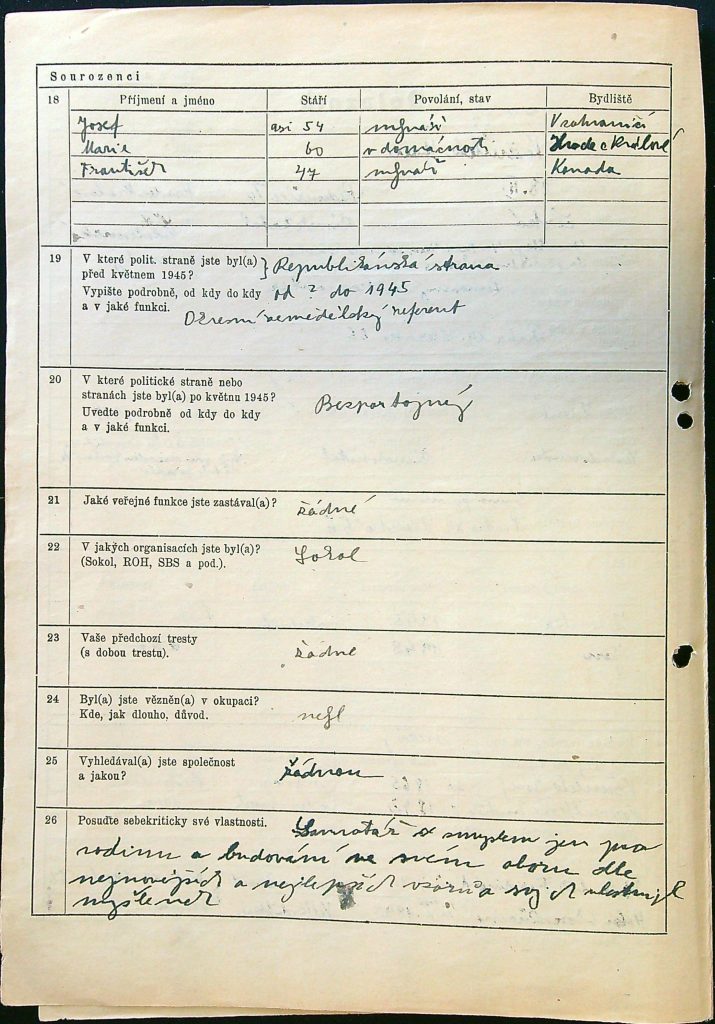 Sourozenci
18 Příjmení a jméno Stáří Povolání, stav Bydliště
Josef asi 54 mlynář V zahraničí
Marie 60 v domácnosti Hradec Králové
František 47 mlynář Kanada
19 V které polit. straně jste byl(a) } Republikánská strana
před květnem 1945?
Vypište podrobně, od kdy do kdy od ? do 1945
a v jaké funkci. Okresní zemědělský referent
20 V které politické straně nebo
stranách jste byl(a) po květnu 1945? Bezpartajný
Uveďte podrobně od kdy do kdy
a v jaké funkci.
21 Jaké veřejné funkce jste zastával(a)? žádné
22 V jakých organisacích jste byl(a)? Sokol
(Sokol, ROH, SBS a pod.).
23 Vaše předchozí tresty
(s dobou trestu). žádné
24 Byl(a) jste vězněn(a) v okupaci?
Kde, jak dlouho, důvod. nebyl
25 Vyhledával(a) jste společnost
a jakou? žádnou
26 Posuďte sebekriticky své vlastnosti. Samotář se smyslem jen pro
rodinu a budování ve svém oboru dle
nejnovějších a nejlepších vzorů a svých vlastních
myšlenek